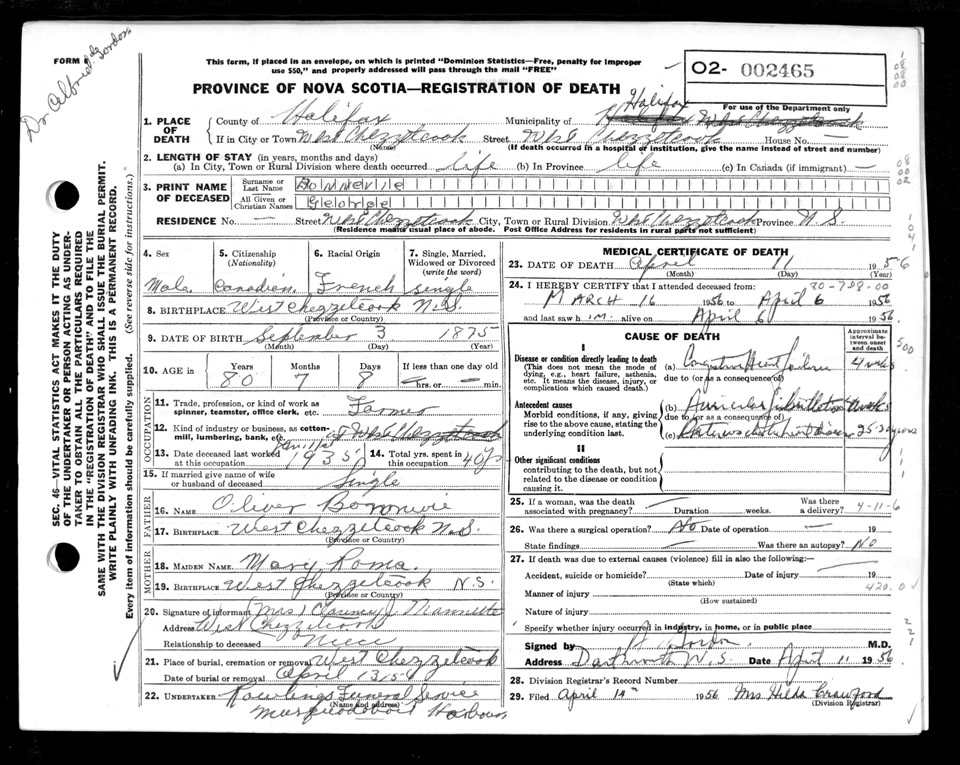 Dr. Albrie de Gordon
FORM 6
This form, if placed in an envelope, on which is printed "Dominion Statistics—Free, penalty for improper
use $50," and properly addressed will pass through the mail "FREE"
O2- 002465
PROVINCE OF NOVA SCOTIA—REGISTRATION OF DEATH
For use of the Department only
1. PLACE OF DEATH
County of Halifax Municipality of Halifax
If in City or Town West Chezzetcook Street West Chezzetcook House No. —
(Name) (If death occurred in a hospital or institution, give the name instead of street and number)
2. LENGTH OF STAY (in years, months and days)
(a) In City, Town or Rural Division where death occurred life (b) In Province life (c) In Canada (if immigrant) —
3. PRINT NAME OF DECEASED
Surname or Last Name Bonnevie
All Given or Christian Names George
RESIDENCE No. — Street West Chezzetcook City, Town or Rural Division West Chezzetcook Province N.S.
(Residence means usual place of abode. Post Office Address for residents in rural parts not sufficient)
4. Sex Male
5. Citizenship (Nationality) Canadian
6. Racial Origin French
7. Single, Married, Widowed or Divorced (write the word) Single
8. BIRTHPLACE West Chezzetcook N.S.
(Province or Country)
9. DATE OF BIRTH September 3 1875
(Month) (Day) (Year)
10. AGE in Years 80 Months 7 Days 8 If less than one day old — hrs. or — min.
OCCUPATION
11. Trade, profession, or kind of work as spinner, teamster, office clerk, etc. Farmer
12. Kind of industry or business, as cotton-mill, lumbering, bank, etc. West Chezzetcook
13. Date deceased last worked at this occupation 1935
14. Total yrs. spent in this occupation 40 yrs
15. If married give name of wife or husband of deceased Single
FATHER
16. NAME Oliver Bonnevie
17. BIRTHPLACE West Chezzetcook N.S.
(Province or Country)
MOTHER
18. MAIDEN NAME Mary Roma
19. BIRTHPLACE West Chezzetcook N.S.
(Province or Country)
20. Signature of informant Mrs Clarency J. Mannette
Address West Chezzetcook
Relationship to deceased Niece
21. Place of burial, cremation or removal West Chezzetcook
Date of burial or removal April 13
22. UNDERTAKER Rawlings Funeral Service
(Name and address)
Musquodoboit Harbour
MEDICAL CERTIFICATE OF DEATH
23. DATE OF DEATH April 11 1956
(Month) (Day) (Year)
20-728-00
24. I HEREBY CERTIFY that I attended deceased from:
MARCH 16 1956 to April 6 1956
and last saw him alive on April 6 1956.
CAUSE OF DEATH
Approximate interval between onset and death
I
Disease or condition directly leading to death
(This does not mean the mode of dying, e.g., heart failure, asthenia, etc. It means the disease, injury, or complication which caused death.)
(a) Congestive Heart failure 4 wks
due to (or as a consequence of)
Antecedent causes
Morbid conditions, if any, giving rise to the above cause, stating the underlying condition last.
(b) Auricular fibrillation
due to (or as a consequence of)
(c) 25-30 years
II
Other significant conditions
contributing to the death, but not related to the disease or condition causing it.
25. If a woman, was the death associated with pregnancy? — Duration weeks. Was there a delivery?
4-11-6
26. Was there a surgical operation? No Date of operation — 19
State findings — Was there an autopsy? No
27. If death was due to external causes (violence) fill in also the following:—
Accident, suicide or homicide? Date of injury 19
(State which)
420.0
Manner of injury
(How sustained)
Nature of injury
Specify whether injury occurred in industry, in home, or in public place
Signed by Gordon M.D.
Address Dartmouth N.S. Date April 11 1956.
28. Division Registrar's Record Number
29. Filed April 14th 1956 Mrs Hilda Crawford
(Division Registrar)
SEC. 46—VITAL STATISTICS ACT MAKES IT THE DUTY
OF THE UNDERTAKER OR PERSON ACTING AS UNDER-
TAKER TO OBTAIN ALL THE PARTICULARS REQUIRED
IN THE "REGISTRATION OF DEATH" AND TO FILE THE
SAME WITH THE DIVISION REGISTRAR WHO SHALL ISSUE THE BURIAL PERMIT.
WRITE PLAINLY WITH UNFADING INK. THIS IS A PERMANENT RECORD.
Every item of information should be carefully supplied. (See reverse side for instructions.)